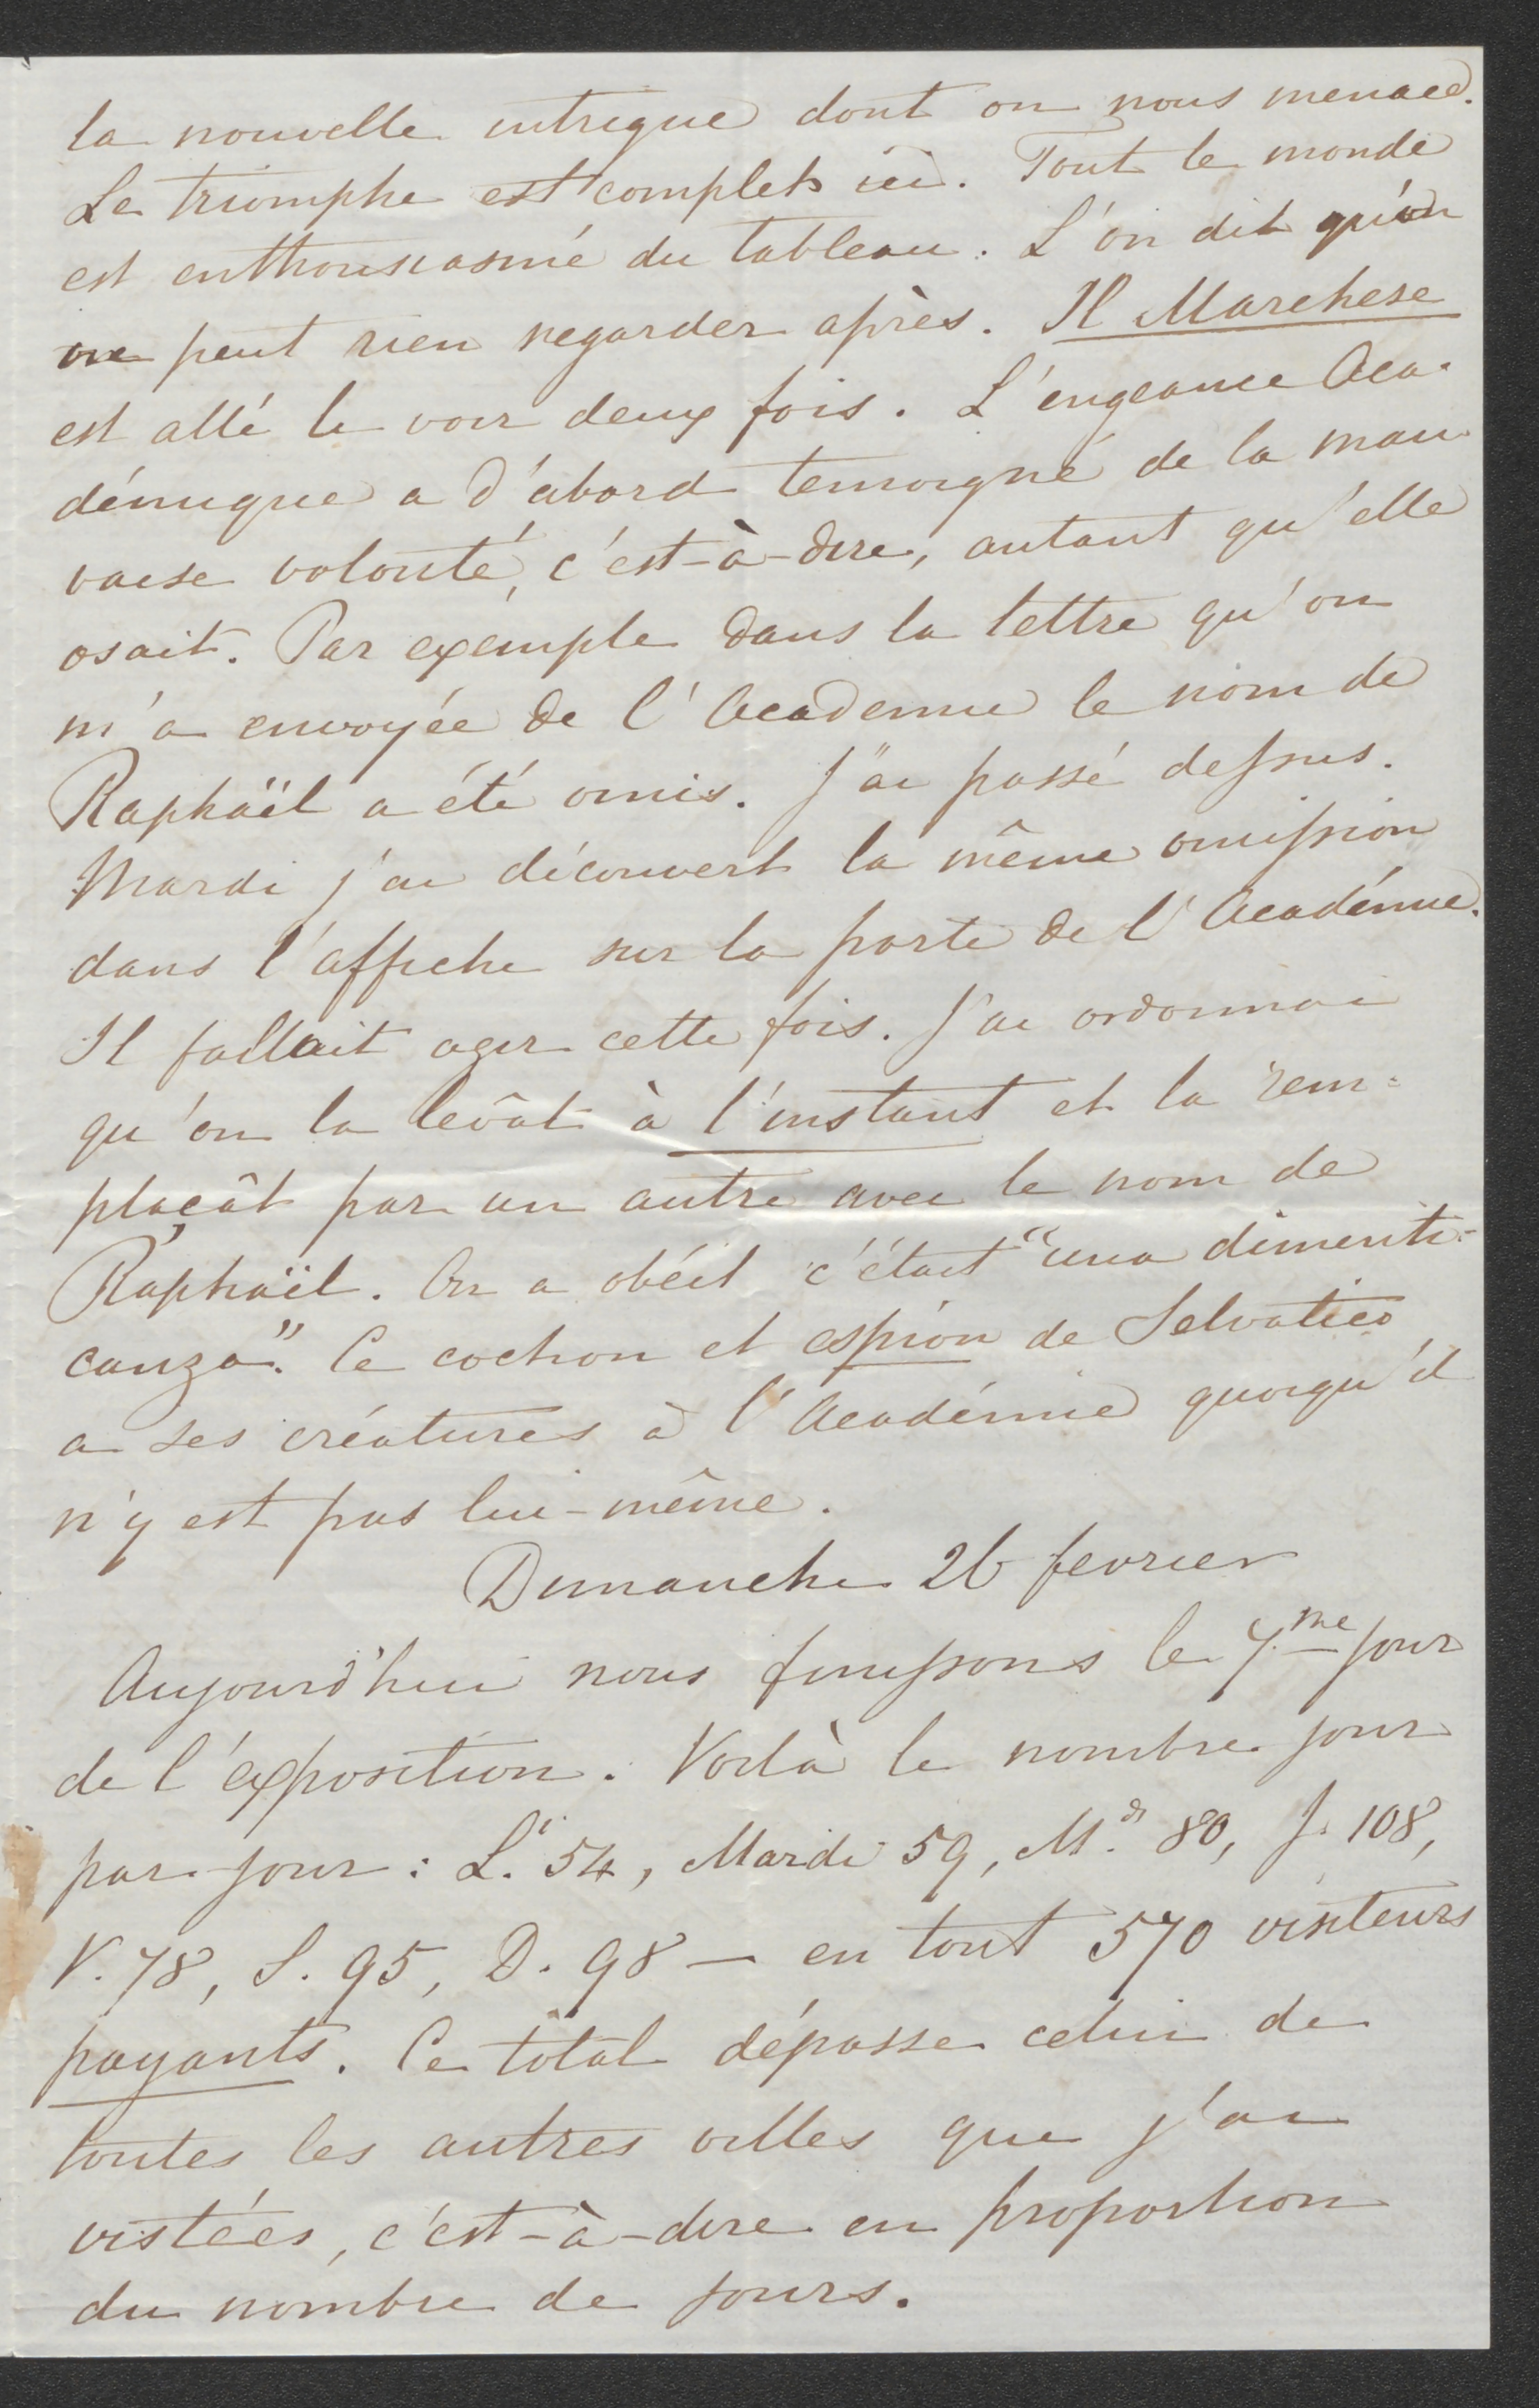 la nouvelle intrigue dont on nous menace.
Le triomphe est complet ici. Tout le monde
est enthousiasmé du tableau. L'on dit qu'on
ne peut rien regarder après. Il Marchese
est allé le voir deux fois. L'engeance Aca-
démique a d'abord temoigné de la mau
vaise volonté, c'est-à-dire, autant qu'elle
osait. Par exemple dans la lettre qu'on
m'a envoyée de l'Academie le nom de
Raphaël a été omis. J'ai passé dessus.
Mardi j'ai découvert la même omission
dans l'affiche sur la porte de l'Académie.
Il fallait agir cette fois. J'ai ordonnai
qu'on la levât à l'instant et la rem=
plaçât par un autre avec le nom de
Raphaël. On a obéit c'était "una dimenti-
canza". Ce cochon et espion de Selvatico
a ses créatures à l'Académie quoiqu'il
n'y est pas lui-même.
Dimanche 26 fevrier
Aujourd'hui nous finissons le 7.me jour
de l'exposition. Voilà le nombre jour
par jour : L.i 54, Mardi 59, M. 80, J. 108,
V. 78, S. 95, D. 98 — en tout 570 visiteurs
payants. Ce total dépasse celui de
toutes les autres villes que j'ai
vistées, c'est-à-dire en proportion
du nombre de jours.